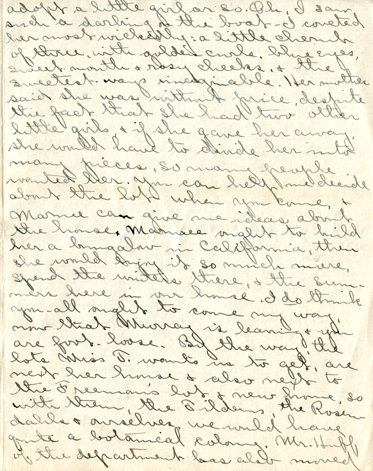 adopt a little girl or so. Oh, I saw
such a darling on the boat - I coveted
her most wickedly: a little cherub
of three, with golden curls, blue eyes,
sweet mouth & rosy cheeks, & the
sweetest ways imaginable. Her mother
said she was without price, despite
the fact that she had two other
little girls, & if she gave her away,
she would have to divide her into
many pieces, so many people
wanted her. You can help me decide
about the lots when you come, &
Marnee can give me ideas about
the house. Marnee ought to build
her a bungalow in California, then
she would enjoy it so much more,
spend the winters there, & the sum-
mers here in our house. I do think
you all ought to come my way,
now that Murray is leaving & you
are foot-loose. By the way, the
lots Miss T. wants us to get, are
next her house & also next to
the Freeman's lot & new home, so
with them, the Tildens, the Rosen-
dahls & ourselves, we would have
quite a botanical colony. Mr. Huff
of the department has also moved